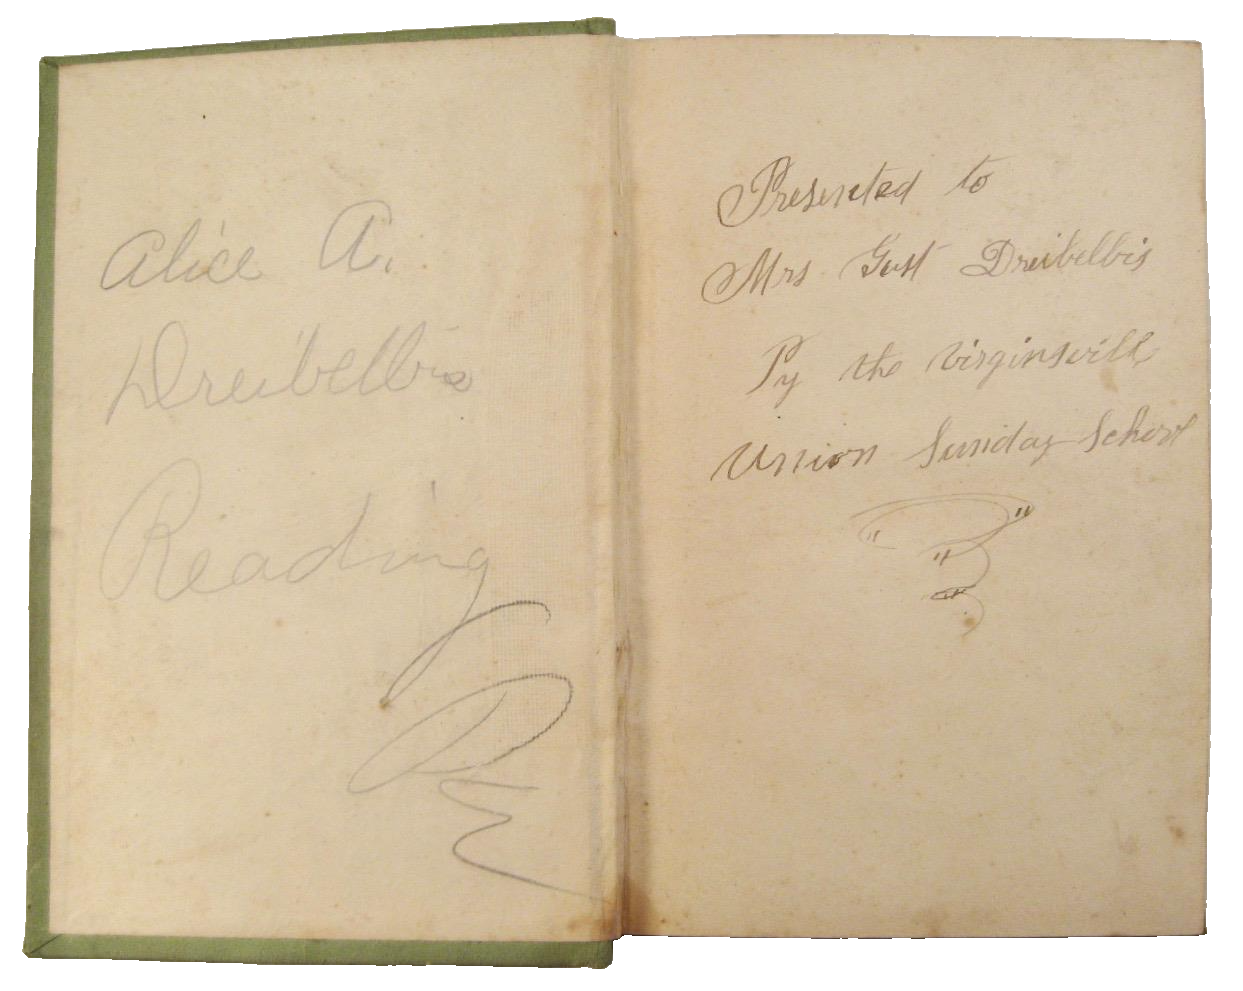 Alice A.
Dreibelbis
Reading
Presented to
Mrs Gust Dreibelbis
Py the Virginsvill
Union Sunday School